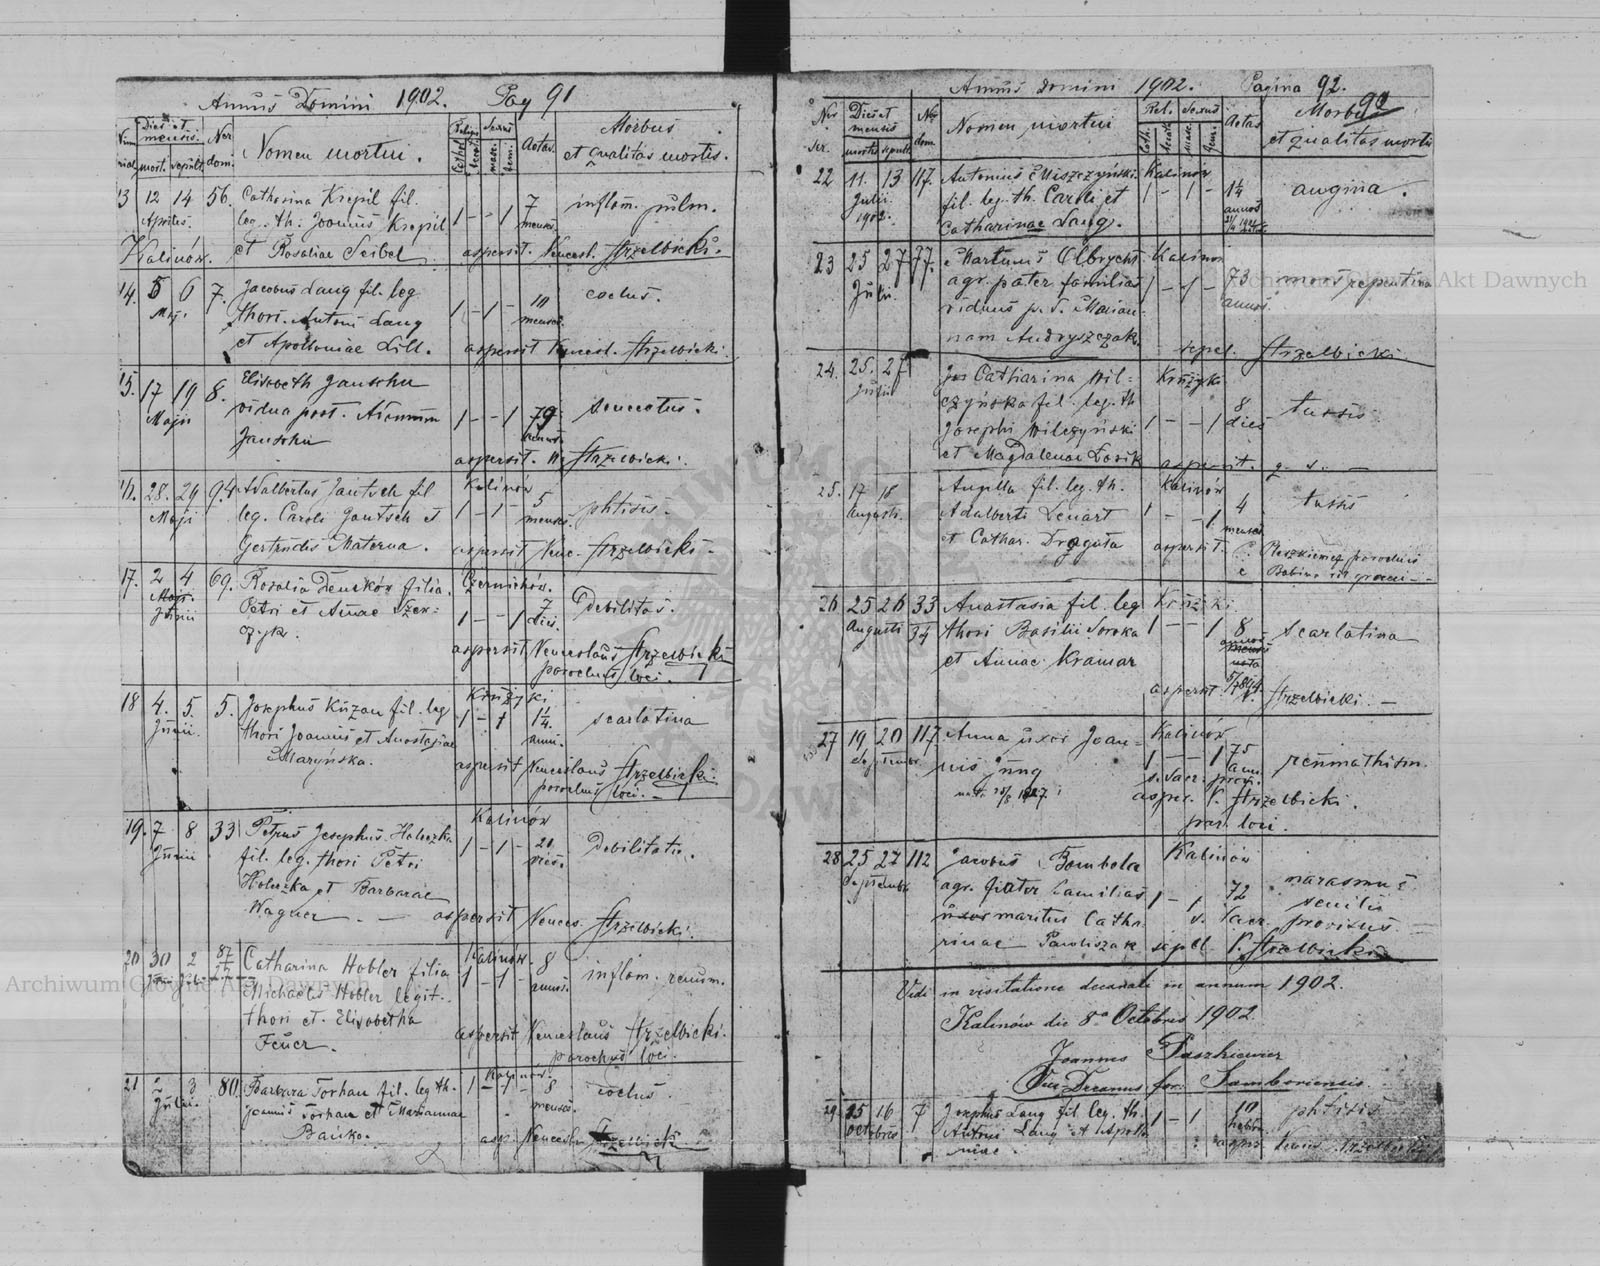 Annus Domini 1902. Pag 91
Num. serial.
Dies et mensis.
mort. sepult.
Nr. dom.
Nomen mortui.
Religio
Cathol.
Sexus
masc.
fem.
Aetas.
Morbus
et qualitas mortis.
13 12 14 56. Catharina Krepil fil. 7 inflam. pulm.
Aprilis. leg. th. Joannis Krepil 1 - - 1 menses.
Kalinów. et Rosaliae Seibel aspersit. Vencesl. Strzelbicki.
14. 5 6 7. Jacobus Lang fil. leg 10 coctus.
Maji. thori Antoni Lang 1 - 1 - menses.
et Apolloniae Lill. aspersit Vencesl. Strzelbicki.
15. 17 19 8. Elisabeth Janschu
Maji vidua post. Adamum 1 - - 1 79 senectus.
Janschu annos.
aspersit. W. Strzelbicki.
16. 28. 29 94 Adalbertus Jantsch fil Kalinów
Maji leg. Caroli Jantsch et 1 - 1 - 5 menses. phtisis.
Gertrudis Materna. aspersit Venc. Strzelbicki.
17. 2 4 69. Rosalia Denków filia Czernichów.
Junii Petri et Annae Szew= 1 - - 1 7 dies. Debilitas.
czyk. aspersit Venceslaus Strzelbicki
parochus loci.
18 4. 5. 5. Josephus Kuzan fil. leg Kružyki
Junii. thori Joannis et Anastasiae 1 - 1 1¼ anni. scarlatina
Maryńska. aspersit Venceslaus Strzelbicki
parochus loci.
Kalinów
19. 7 8 33 Petrus Josephus Holuszka
Junii fil. leg. thori Petri 1 - 1 - dies. Debilitatis.
Holuszka et Barbarae
Wagner. aspersit Vences. Strzelbicki.
20 30 2 87 Catharina Hobler filia Kalinów. 8 inflam. renum.
Michaelis Hobler legit. 1 - 1 - annos.
thori et Elisabetha aspersit Venceslaus Strzelbicki.
Feuer. parochus loci.
21 2 3 80. Barbara Torhan fil. leg th. Kalinów. 8 coctus.
Julii. Joannis Torhan et Mariannae menses.
Bańko. asp. Venceslaus Strzelbicki
Annus Domini 1902. Pagina 92.
92
Nrs ser.
Dies et mensis
mortis sepult.
Nrs dom.
Nomen mortui
Rel. Sexus
Cath.
masc.
fem.
Aetas
Morbus
et qualitas mortis
22 11. 13 117. Antonius Miszczyński Kalinów
Julii fil. leg. th. Caroli et 1 - 1 - 1¼ angina.
1902. Catharinae Lang. annos
23 25 27 77. Martinus Olbrycht Kalinów
Julii. agr. pater familias 1 - 1 - 73 mors repentina
viduus p. d. Marian= annos.
nam Andryszczak. sepel. Strzelbicki
24. 25. 27 Jos Catharina Wil= Kružyki
Julii czyńska fil. leg. th 8 tussis.
Josephi Wilczyński 1 - - 1 dies
et Magdalenae Losik aspersit. q. s.
25. 17 18 Angella fil. leg. th. Kalinów 4 tussis
Augusti. Adalberti Lenart 1 - - 1 menses
et Cathar. Draguła aspersit. Paszkiewicz parochus
26 25 26 33 Anastasia fil. leg Kružyki
Augusti 34 thori Basilii Soroka 1 - - 1 8 scarlatina
et Annae Kramar annos
aspersit Strzelbicki.
27 19 20 117 Anna uxor Joan= Kalinów
Septembr. nis Jung 1 - - 1 75 reumathism.
s. Sacr. provi.
asper. V. Strzelbicki.
par. loci.
28 25 27 112 Jacobus Bombola Kalinów marasmus
Septembr agr. pater familias 1 - 1 72 senilis
uxor maritus Catha s. Sacr. provisus.
rinae Pawliszak sepel V. Strzelbicki
Vidi in visitatione decanali in annum 1902.
Kalinów die 8a Octobris 1902
Joannes Paszkiewicz
Vice-Decanus for. Samboriensis.
29. 15 16 7 Josephus Lang fil. leg. th. 10 phtisis
Octobris Antoni Lang et Apollo 1 - 1
niae.
Archiwum Główne Akt Dawnych
Archiwum Główne Akt Dawnych